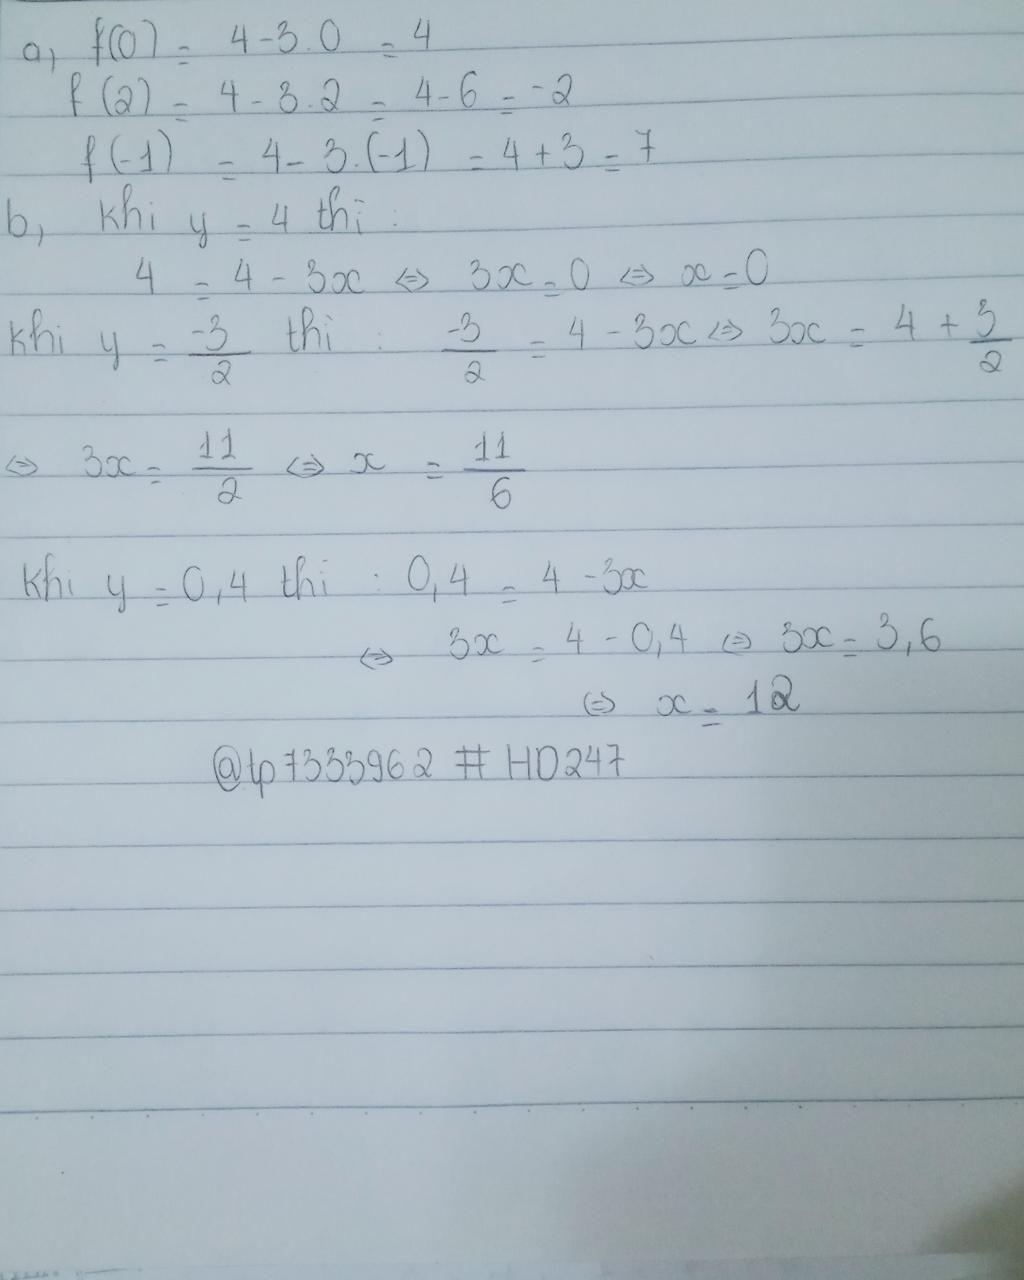 a, f(0) = 4-3.0 = 4
f(2) = 4-3.2 = 4-6 = -2
f(-1) = 4-3.(-1) = 4+3 = 7
b, Khi y = 4 thì :
4 = 4-3x ⇔ 3x=0 ⇔ x=0
Khi y = -3/2 thì : -3/2 = 4-3x ⇔ 3x = 4 + 3/2
⇔ 3x = 11/2 ⇔ x = 11/6
Khi y = 0,4 thì : 0,4 = 4-3x
⇔ 3x = 4-0,4 ⇔ 3x = 3,6
⇔ x = 12
@tp7333962 # HD247